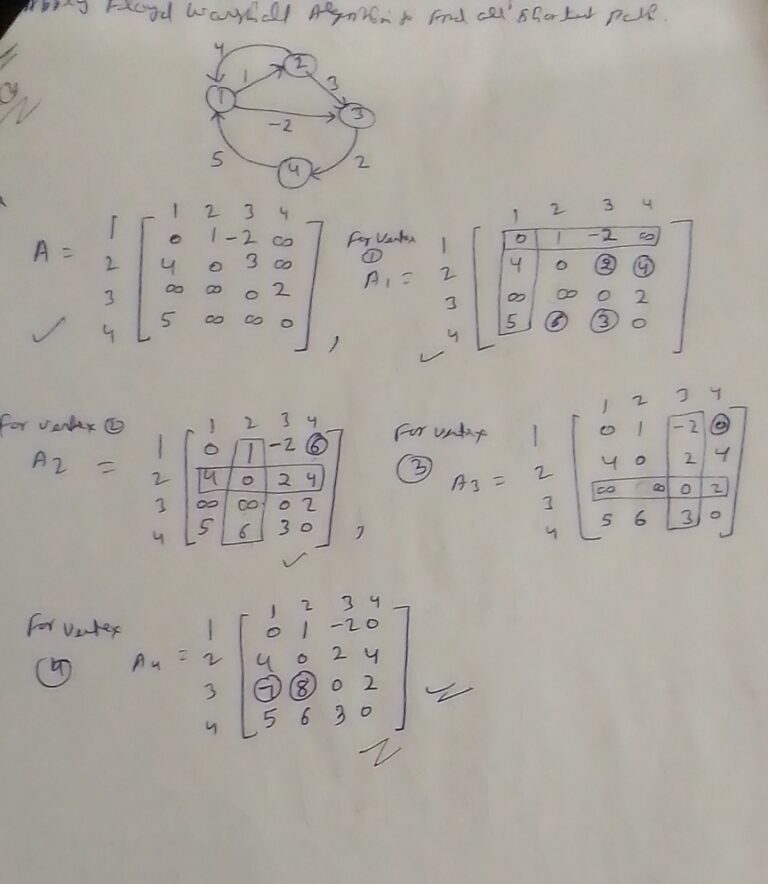 Floyd Warshall Algorithm to find all shortest path.
4
2
1
3
1
3
-2
5
4
2
1 2 3 4
A = 1 0 1 -2 ∞
2 4 0 3 ∞
3 ∞ ∞ 0 2
4 5 ∞ ∞ 0 ,
For vertex ①
1 2 3 4
A₁ = 1 0 1 -2 ∞
2 4 0 2 4
3 ∞ ∞ 0 2
4 5 6 3 0
For vertex ②
1 2 3 4
A2 = 1 0 1 -2 6
2 4 0 2 4
3 ∞ ∞ 0 2
4 5 6 3 0 ,
For vertex ③
1 2 3 4
A3 = 1 0 1 -2 0
2 4 0 2 4
3 ∞ ∞ 0 2
4 5 6 3 0
For vertex ④
1 2 3 4
A4 = 1 0 1 -2 0
2 4 0 2 4
3 7 8 0 2
4 5 6 3 0